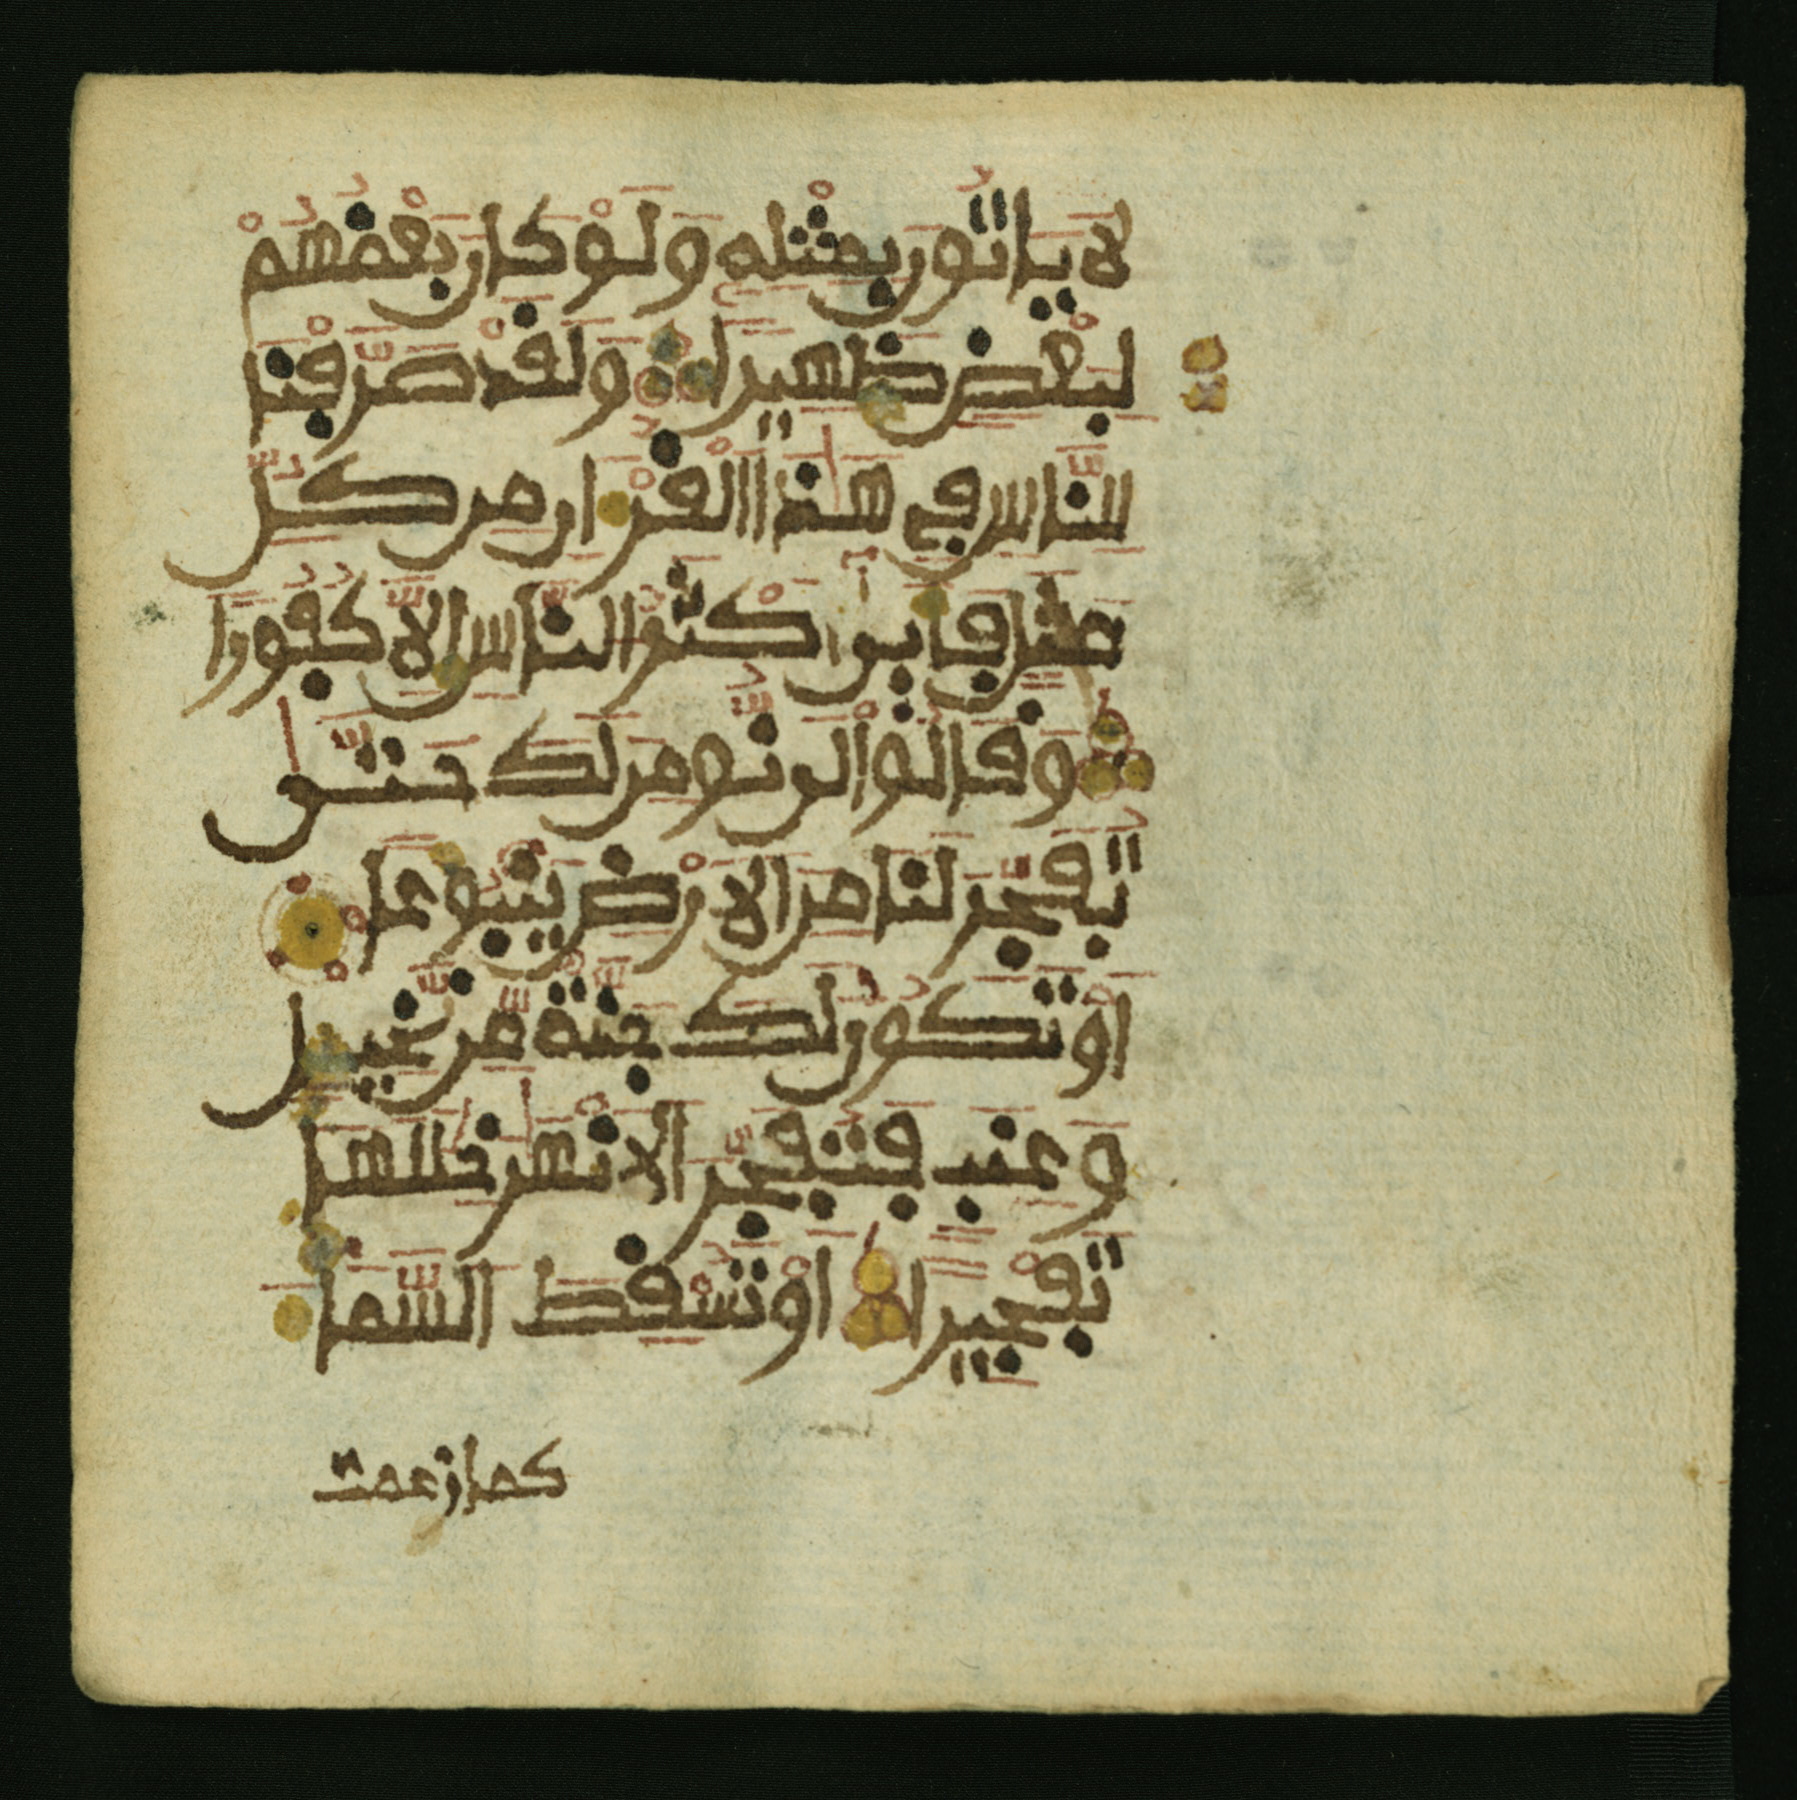 لَا يَاتُونَ بِمِثْلِهِ وَلَوْ كَانَ بَعْضُهُمْ
لِبَعْضٍ ظَهِيرًا وَلَقَدْ صَرَّفْنَا
لِلنَّاسِ فِي هَٰذَا الْقُرْءَانِ مِن كُلِّ
مَثَلٍ فَأَبَىٰ أَكْثَرُ النَّاسِ إِلَّا كُفُورًا
وَقَالُوا لَن نُّومِنَ لَكَ حَتَّىٰ
تُفَجِّرَ لَنَا مِنَ الْأَرْضِ يَنْبُوعًا
أَوْ تَكُونَ لَكَ جَنَّةٌ مِّن نَّخِيلٍ
وَعِنَبٍ فَتُفَجِّرَ الْأَنْهَٰرَ خِلَٰلَهَا
تَفْجِيرًا أَوْ تُسْقِطَ السَّمَا
كما زعمت